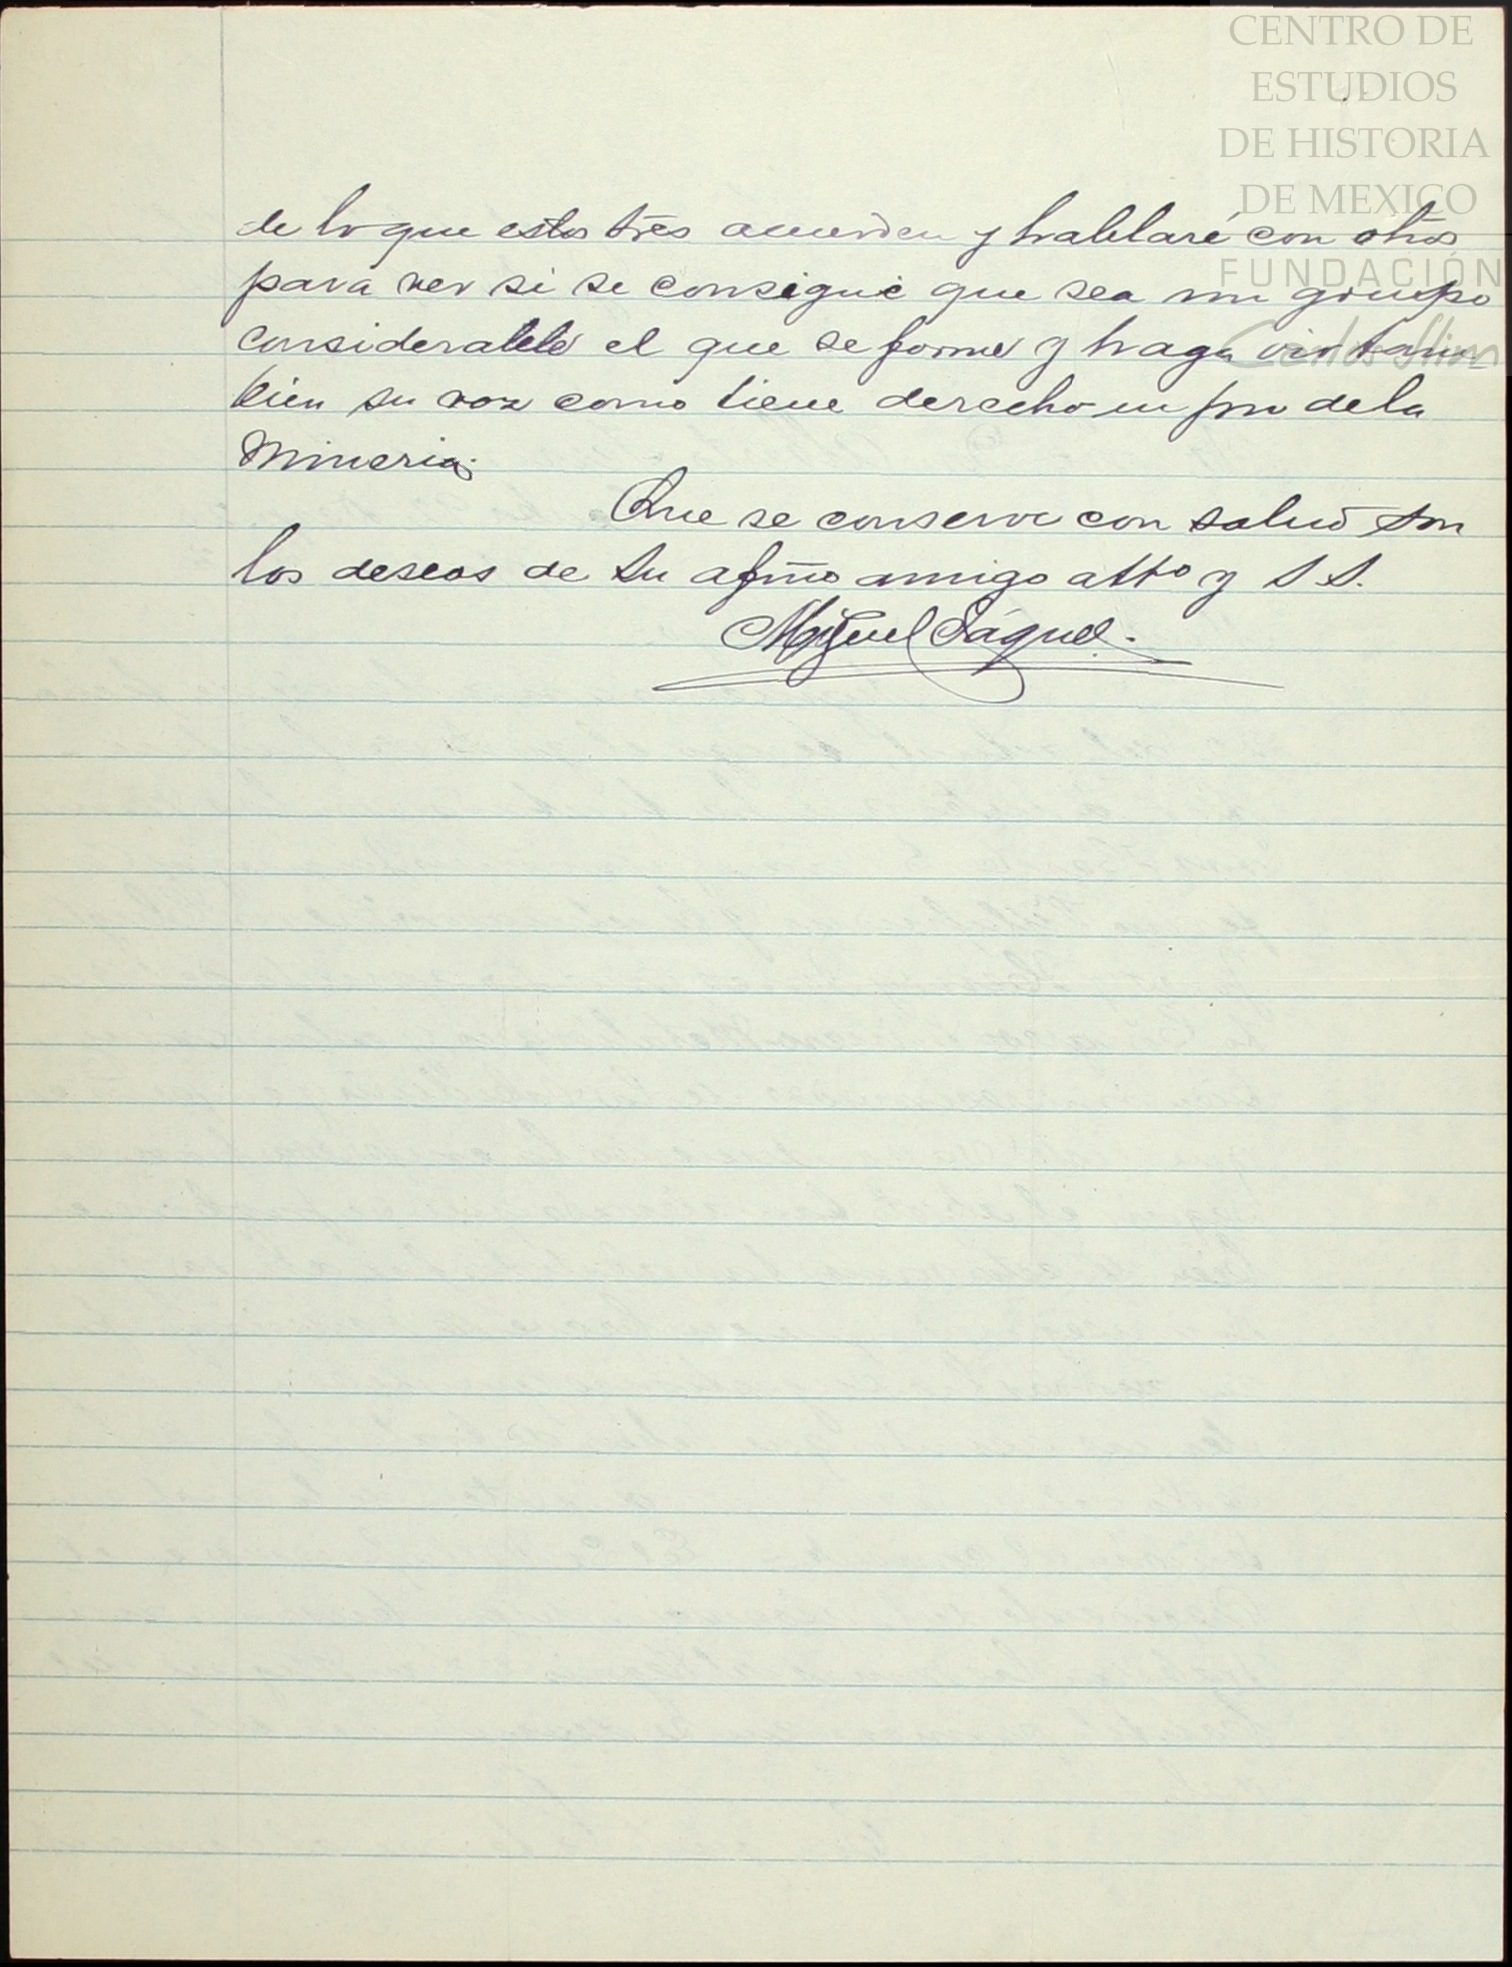 CENTRO DE
ESTUDIOS
DE HISTORIA
DE MEXICO
FUNDACIÓN
Carlos Slim
de lo que estos tres acuerden y hablaré con otros
para ver si se consigue que sea un grupo
considerable el que se forme y haga oir tam
bien su voz como tiene derecho en pro de la
Mineria.
Que se conserve con salud son
los deseos de su afmo amigo atto y S S.
Miguel